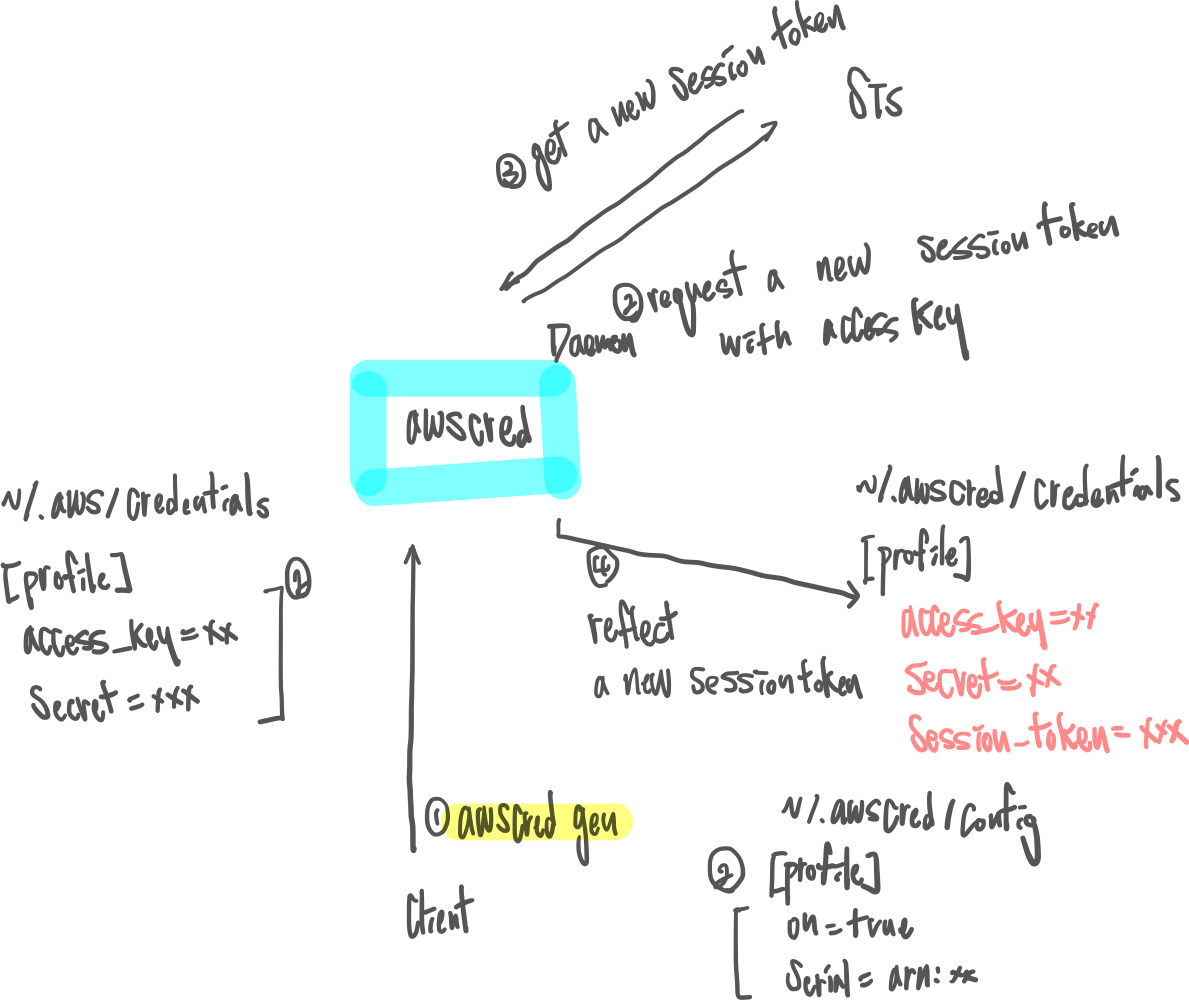 ③ get a new session token
STS
② request a new session token
with access key
Daemon
awscred
~/.aws/credentials
[profile]
②
access_key=xx
secret=xxx
~/.awscred/credentials
[profile]
access_key=xx
secret=xx
session_token=xxx
④
reflect
a new session token
① awscred gen
client
~/.awscred/config
② [profile]
on=true
serial=arn:xx